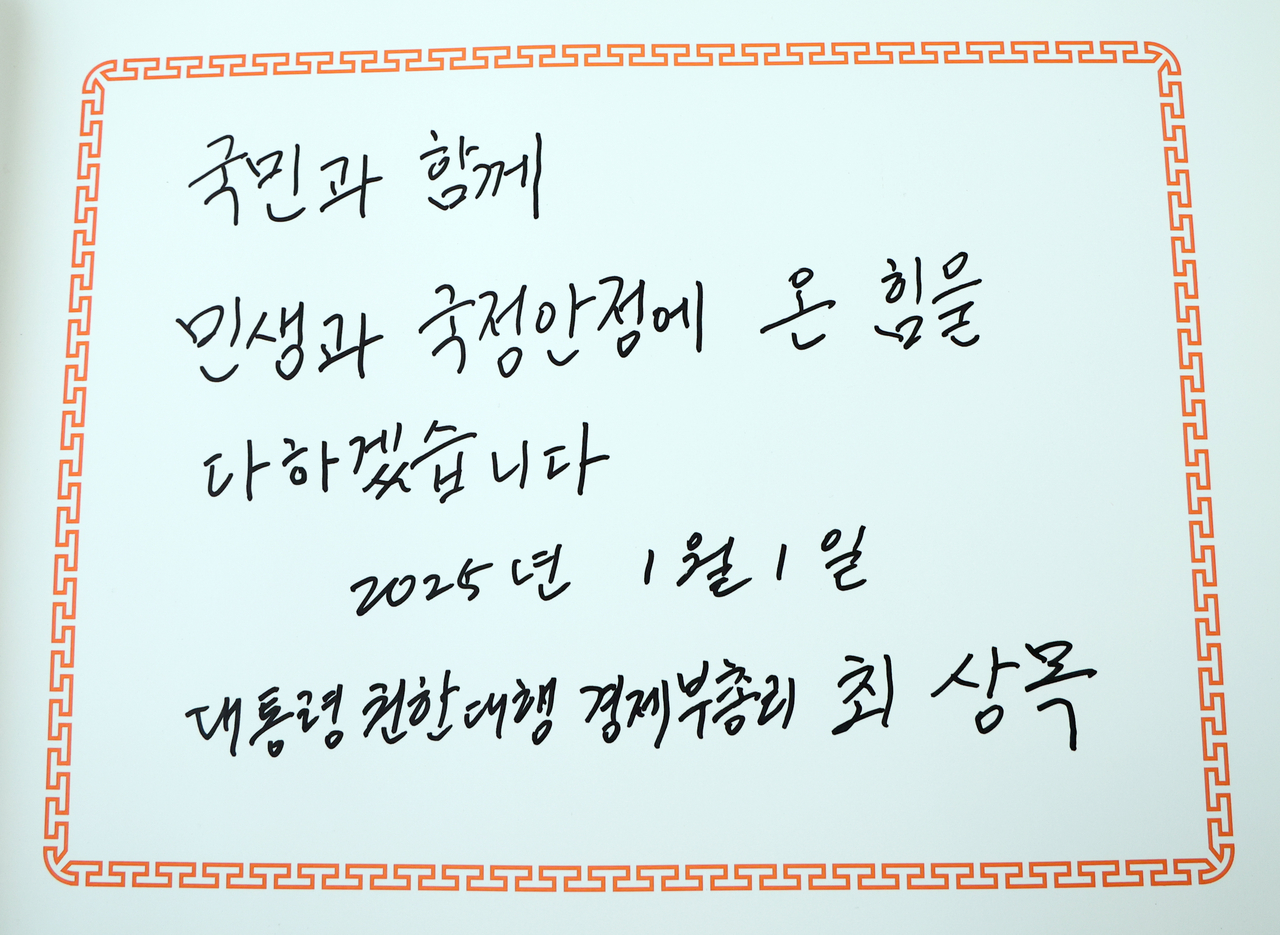 국민과 함께
민생과 국정안정에 온 힘을
다하겠습니다
2025년 1월 1일
대통령 권한대행 경제부총리 최상목